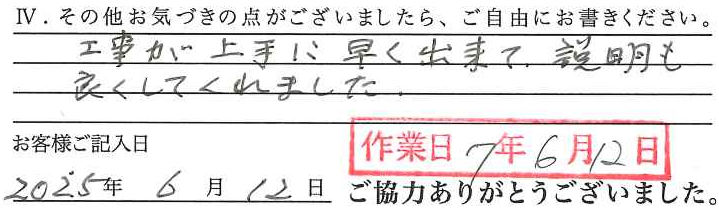 Ⅳ．その他お気づきの点がございましたら、ご自由にお書きください。
工事が上手に早く出来て、説明も
良くしてくれました.
お客様ご記入日
作業日 7年6月12日
2025年 6月12日 ご協力ありがとうございました。